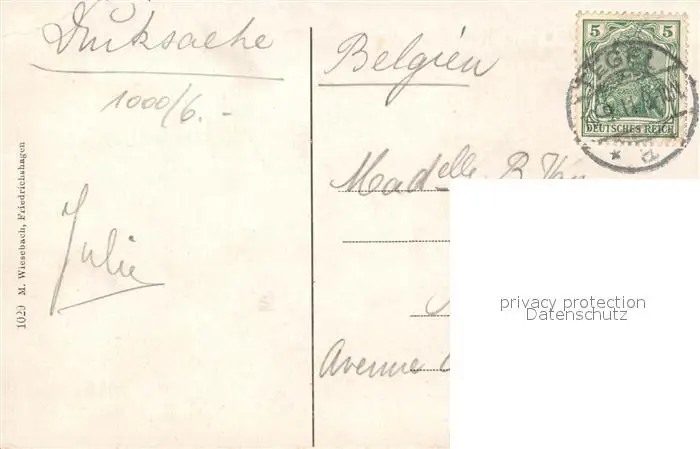 Druksache
1000/6.-
Julie
1029 M. Wiesebach, Friedrichshagen
Belgien
5 5
DEUTSCHES REICH
TEGEL
Madelle B. Van
Avenue
privacy protection
Datenschutz